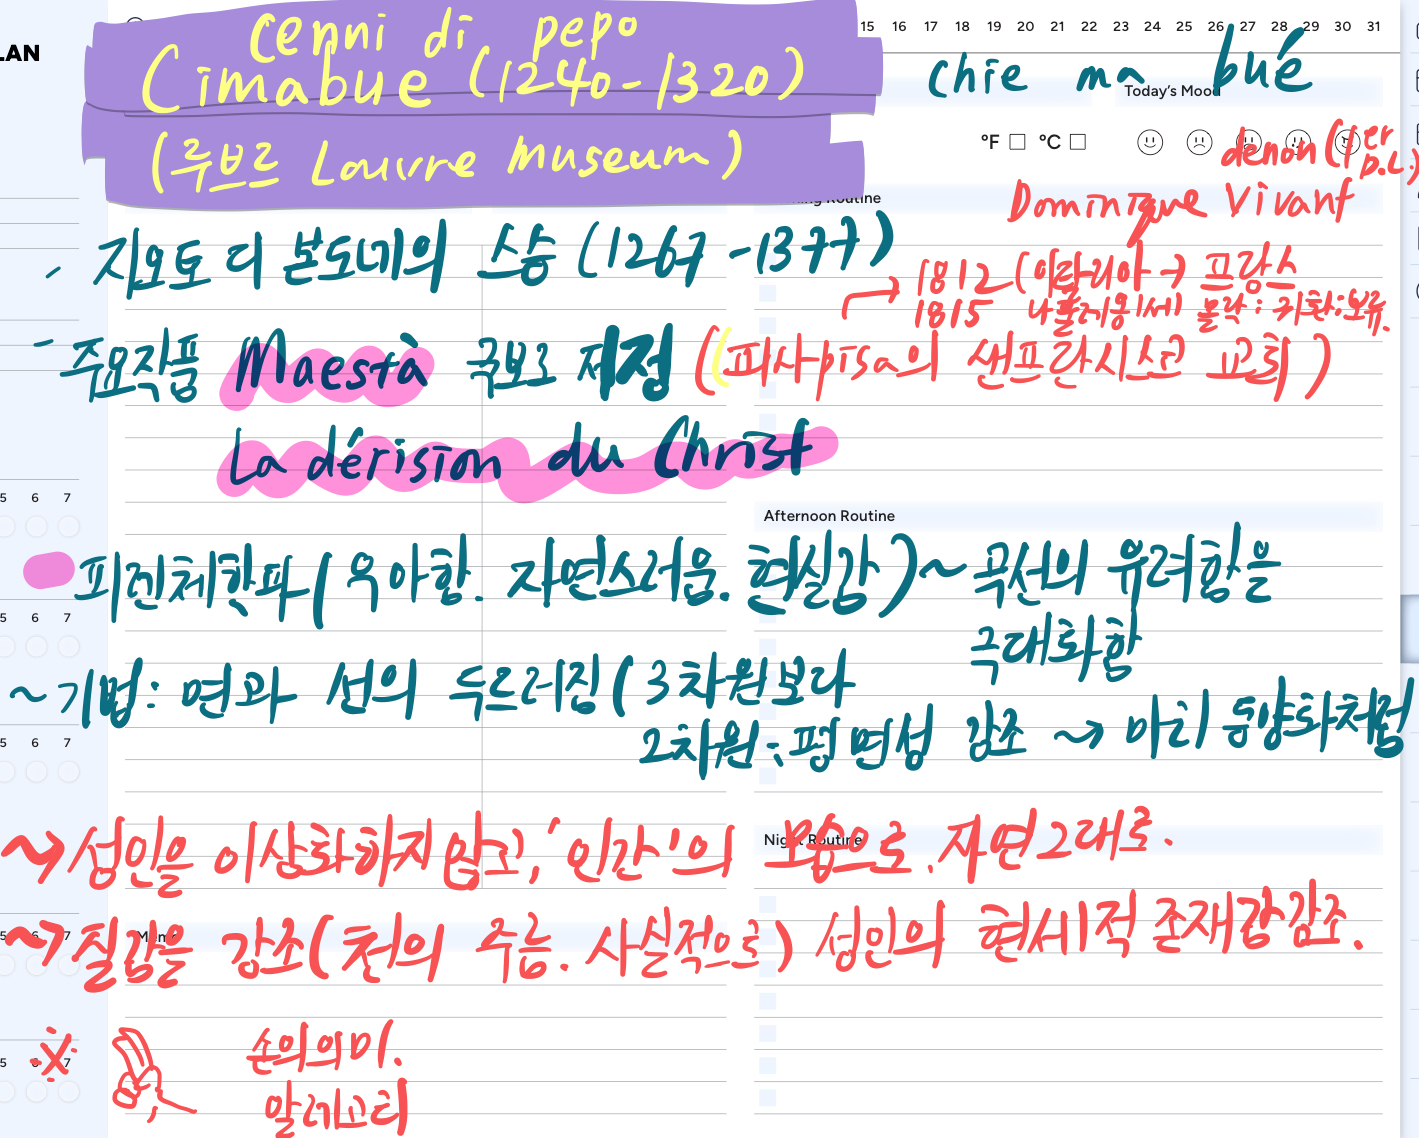 LAN
15 16 17 18 19 20 21 22 23 24 25 26 27 28 29 30 31
Cenni di pepo
Cimabue (1240-1320)
(루브르 Louvre Museum)
Chie ma bué
Today's Mood
°F °C
denon (1er D.L.)
Dominique Vivant
Routine
- 지오토 디 본도네의 스승 (1267-1377)
→ 1812 (이탈리아 → 프랑스
1815 나폴레옹1세) 몰락:귀환:보류.
- 주요작품 Maestà 국보로 지정 (피사pisa의 샌프란시스코 교회)
La dérision du Christ
5 6 7
Afternoon Routine
피렌체한파 (우아함. 자연스러움. 현실감) ~ 곡선의 유려함을
극대화함
5 6 7
~ 기법: 면과 선의 두르러짐 (3차원보다
2차원:평면성 강조 ~> 마치 동양화처럼
5 6 7
Night Routine
~> 성인을 이상화하지않고, '인간'의 모습으로. 자연그대로.
5 7
Memo
~> 질감을 강조 (천의 주름. 사실적으로) 성인의 현세적 존재감강조.
5 6 7
※ 손의의미.
알레고리